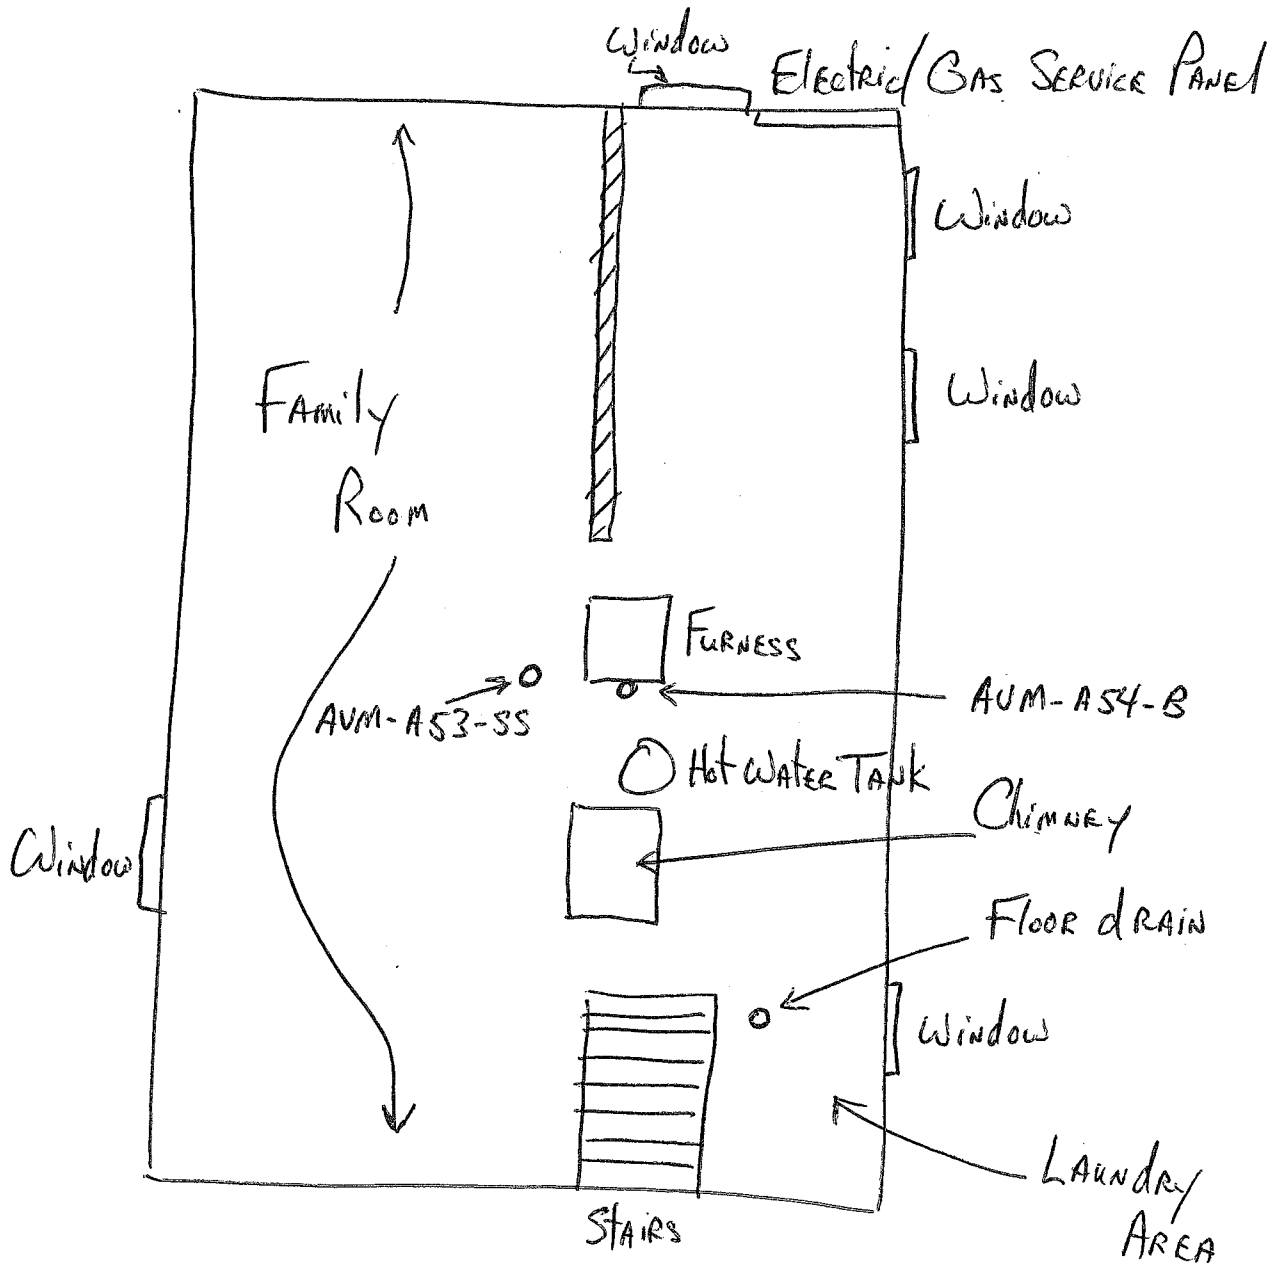 Window
Electric/Gas Service Panel
Window
Window
Family
Room
Furness
AVM-A53-SS
AVM-A54-B
Hot Water Tank
Chimney
Window
Floor drain
Window
Laundry
Area
Stairs